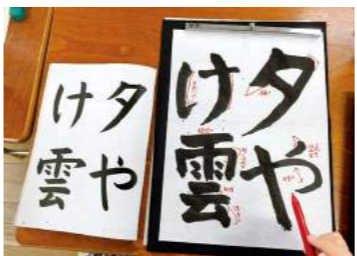 夕や
け雲
夕や
け雲